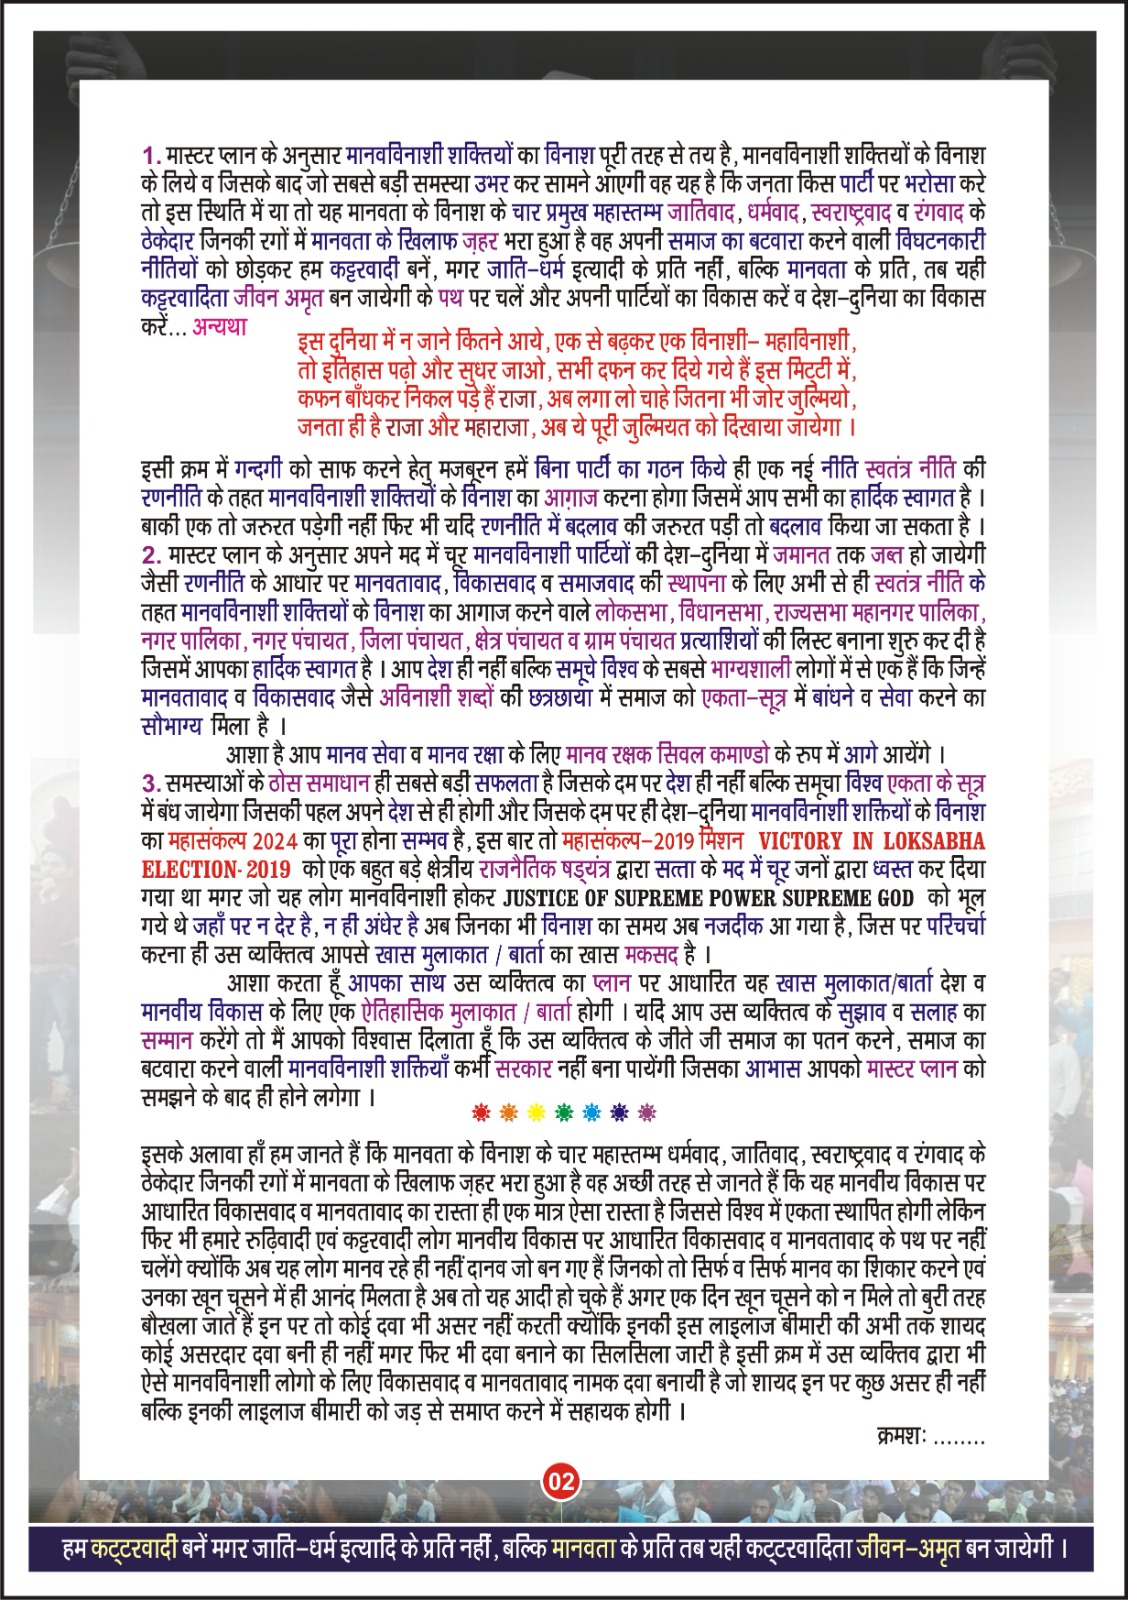 1. मास्टर प्लान के अनुसार मानवविनाशी शक्तियों का विनाश पूरी तरह से तय है, मानवविनाशी शक्तियों के विनाश
के लिये व जिसके बाद जो सबसे बड़ी समस्या उभर कर सामने आएगी वह यह है कि जनता किस पार्टी पर भरोसा करे
तो इस स्थिति में या तो यह मानवता के विनाश के चार प्रमुख महास्तम्भ जातिवाद, धर्मवाद, स्वराष्ट्रवाद व रंगवाद के
ठेकेदार जिनकी रगों में मानवता के खिलाफ ज़हर भरा हुआ है वह अपनी समाज का बटवारा करने वाली विघटनकारी
नीतियों को छोड़कर हम कट्टरवादी बनें, मगर जाति-धर्म इत्यादी के प्रति नहीं, बल्कि मानवता के प्रति, तब यही
कट्टरवादिता जीवन अमृत बन जायेगी के पथ पर चलें और अपनी पार्टियों का विकास करें व देश-दुनिया का विकास
करें... अन्यथा
इस दुनिया में न जाने कितने आये, एक से बढ़कर एक विनाशी- महाविनाशी,
तो इतिहास पढ़ो और सुधर जाओ, सभी दफन कर दिये गये हैं इस मिट्टी में,
कफन बाँधकर निकल पड़े हैं राजा, अब लगा लो चाहे जितना भी जोर जुल्मियो,
जनता ही है राजा और महाराजा, अब ये पूरी जुल्मियत को दिखाया जायेगा ।
इसी क्रम में गन्दगी को साफ करने हेतु मजबूरन हमें बिना पार्टी का गठन किये ही एक नई नीति स्वतंत्र नीति की
रणनीति के तहत मानवविनाशी शक्तियों के विनाश का आग़ाज करना होगा जिसमें आप सभी का हार्दिक स्वागत है ।
बाकी एक तो जरुरत पड़ेगी नहीं फिर भी यदि रणनीति में बदलाव की जरुरत पड़ी तो बदलाव किया जा सकता है ।
2. मास्टर प्लान के अनुसार अपने मद में चूर मानवविनाशी पार्टियों की देश-दुनिया में जमानत तक जब्त हो जायेगी
जैसी रणनीति के आधार पर मानवतावाद, विकासवाद व समाजवाद की स्थापना के लिए अभी से ही स्वतंत्र नीति के
तहत मानवविनाशी शक्तियों के विनाश का आगाज करने वाले लोकसभा, विधानसभा, राज्यसभा महानगर पालिका,
नगर पालिका, नगर पंचायत, जिला पंचायत, क्षेत्र पंचायत व ग्राम पंचायत प्रत्याशियों की लिस्ट बनाना शुरु कर दी है
जिसमें आपका हार्दिक स्वागत है । आप देश ही नहीं बल्कि समूचे विश्व के सबसे भाग्यशाली लोगों में से एक हैं कि जिन्हें
मानवतावाद व विकासवाद जैसे अविनाशी शब्दों की छत्रछाया में समाज को एकता-सूत्र में बांधने व सेवा करने का
सौभाग्य मिला है ।
आशा है आप मानव सेवा व मानव रक्षा के लिए मानव रक्षक सिवल कमाण्डो के रुप में आगे आयेंगे ।
3. समस्याओं के ठोस समाधान ही सबसे बड़ी सफलता है जिसके दम पर देश ही नहीं बल्कि समूचा विश्व एकता के सूत्र
में बंध जायेगा जिसकी पहल अपने देश से ही होगी और जिसके दम पर ही देश-दुनिया मानवविनाशी शक्तियों के विनाश
का महासंकल्प 2024 का पूरा होना सम्भव है, इस बार तो महासंकल्प-2019 मिशन VICTORY IN LOKSABHA
ELECTION-2019 को एक बहुत बड़े क्षेत्रीय राजनैतिक षड्यंत्र द्वारा सत्ता के मद में चूर जनों द्वारा ध्वस्त कर दिया
गया था मगर जो यह लोग मानवविनाशी होकर JUSTICE OF SUPREME POWER SUPREME GOD को भूल
गये थे जहाँ पर न देर है, न ही अंधेर है अब जिनका भी विनाश का समय अब नजदीक आ गया है, जिस पर परिचर्चा
करना ही उस व्यक्तित्व आपसे खास मुलाकात / बार्ता का खास मकसद है ।
आशा करता हूँ आपका साथ उस व्यक्तित्व का प्लान पर आधारित यह खास मुलाकात/बार्ता देश व
मानवीय विकास के लिए एक ऐतिहासिक मुलाकात / बार्ता होगी । यदि आप उस व्यक्तित्व के सुझाव व सलाह का
सम्मान करेंगे तो मैं आपको विश्वास दिलाता हूँ कि उस व्यक्तित्व के जीते जी समाज का पतन करने, समाज का
बटवारा करने वाली मानवविनाशी शक्तियाँ कभी सरकार नहीं बना पायेंगी जिसका आभास आपको मास्टर प्लान को
समझने के बाद ही होने लगेगा ।
इसके अलावा हाँ हम जानते हैं कि मानवता के विनाश के चार महास्तम्भ धर्मवाद, जातिवाद, स्वराष्ट्रवाद व रंगवाद के
ठेकेदार जिनकी रगों में मानवता के खिलाफ ज़हर भरा हुआ है वह अच्छी तरह से जानते हैं कि यह मानवीय विकास पर
आधारित विकासवाद व मानवतावाद का रास्ता ही एक मात्र ऐसा रास्ता है जिससे विश्व में एकता स्थापित होगी लेकिन
फिर भी हमारे रुढ़िवादी एवं कट्टरवादी लोग मानवीय विकास पर आधारित विकासवाद व मानवतावाद के पथ पर नहीं
चलेंगे क्योंकि अब यह लोग मानव रहे ही नहीं दानव जो बन गए हैं जिनको तो सिर्फ व सिर्फ मानव का शिकार करने एवं
उनका खून चूसने में ही आनंद मिलता है अब तो यह आदी हो चुके हैं अगर एक दिन खून चूसने को न मिले तो बुरी तरह
बौखला जाते हैं इन पर तो कोई दवा भी असर नहीं करती क्योंकि इनकी इस लाइलाज बीमारी की अभी तक शायद
कोई असरदार दवा बनी ही नहीं मगर फिर भी दवा बनाने का सिलसिला जारी है इसी क्रम में उस व्यक्तिव द्वारा भी
ऐसे मानवविनाशी लोगो के लिए विकासवाद व मानवतावाद नामक दवा बनायी है जो शायद इन पर कुछ असर ही नहीं
बल्कि इनकी लाइलाज बीमारी को जड़ से समाप्त करने में सहायक होगी ।
क्रमशः ........
02
हम कट्टरवादी बनें मगर जाति-धर्म इत्यादि के प्रति नहीं, बल्कि मानवता के प्रति तब यही कट्टरवादिता जीवन-अमृत बन जायेगी ।